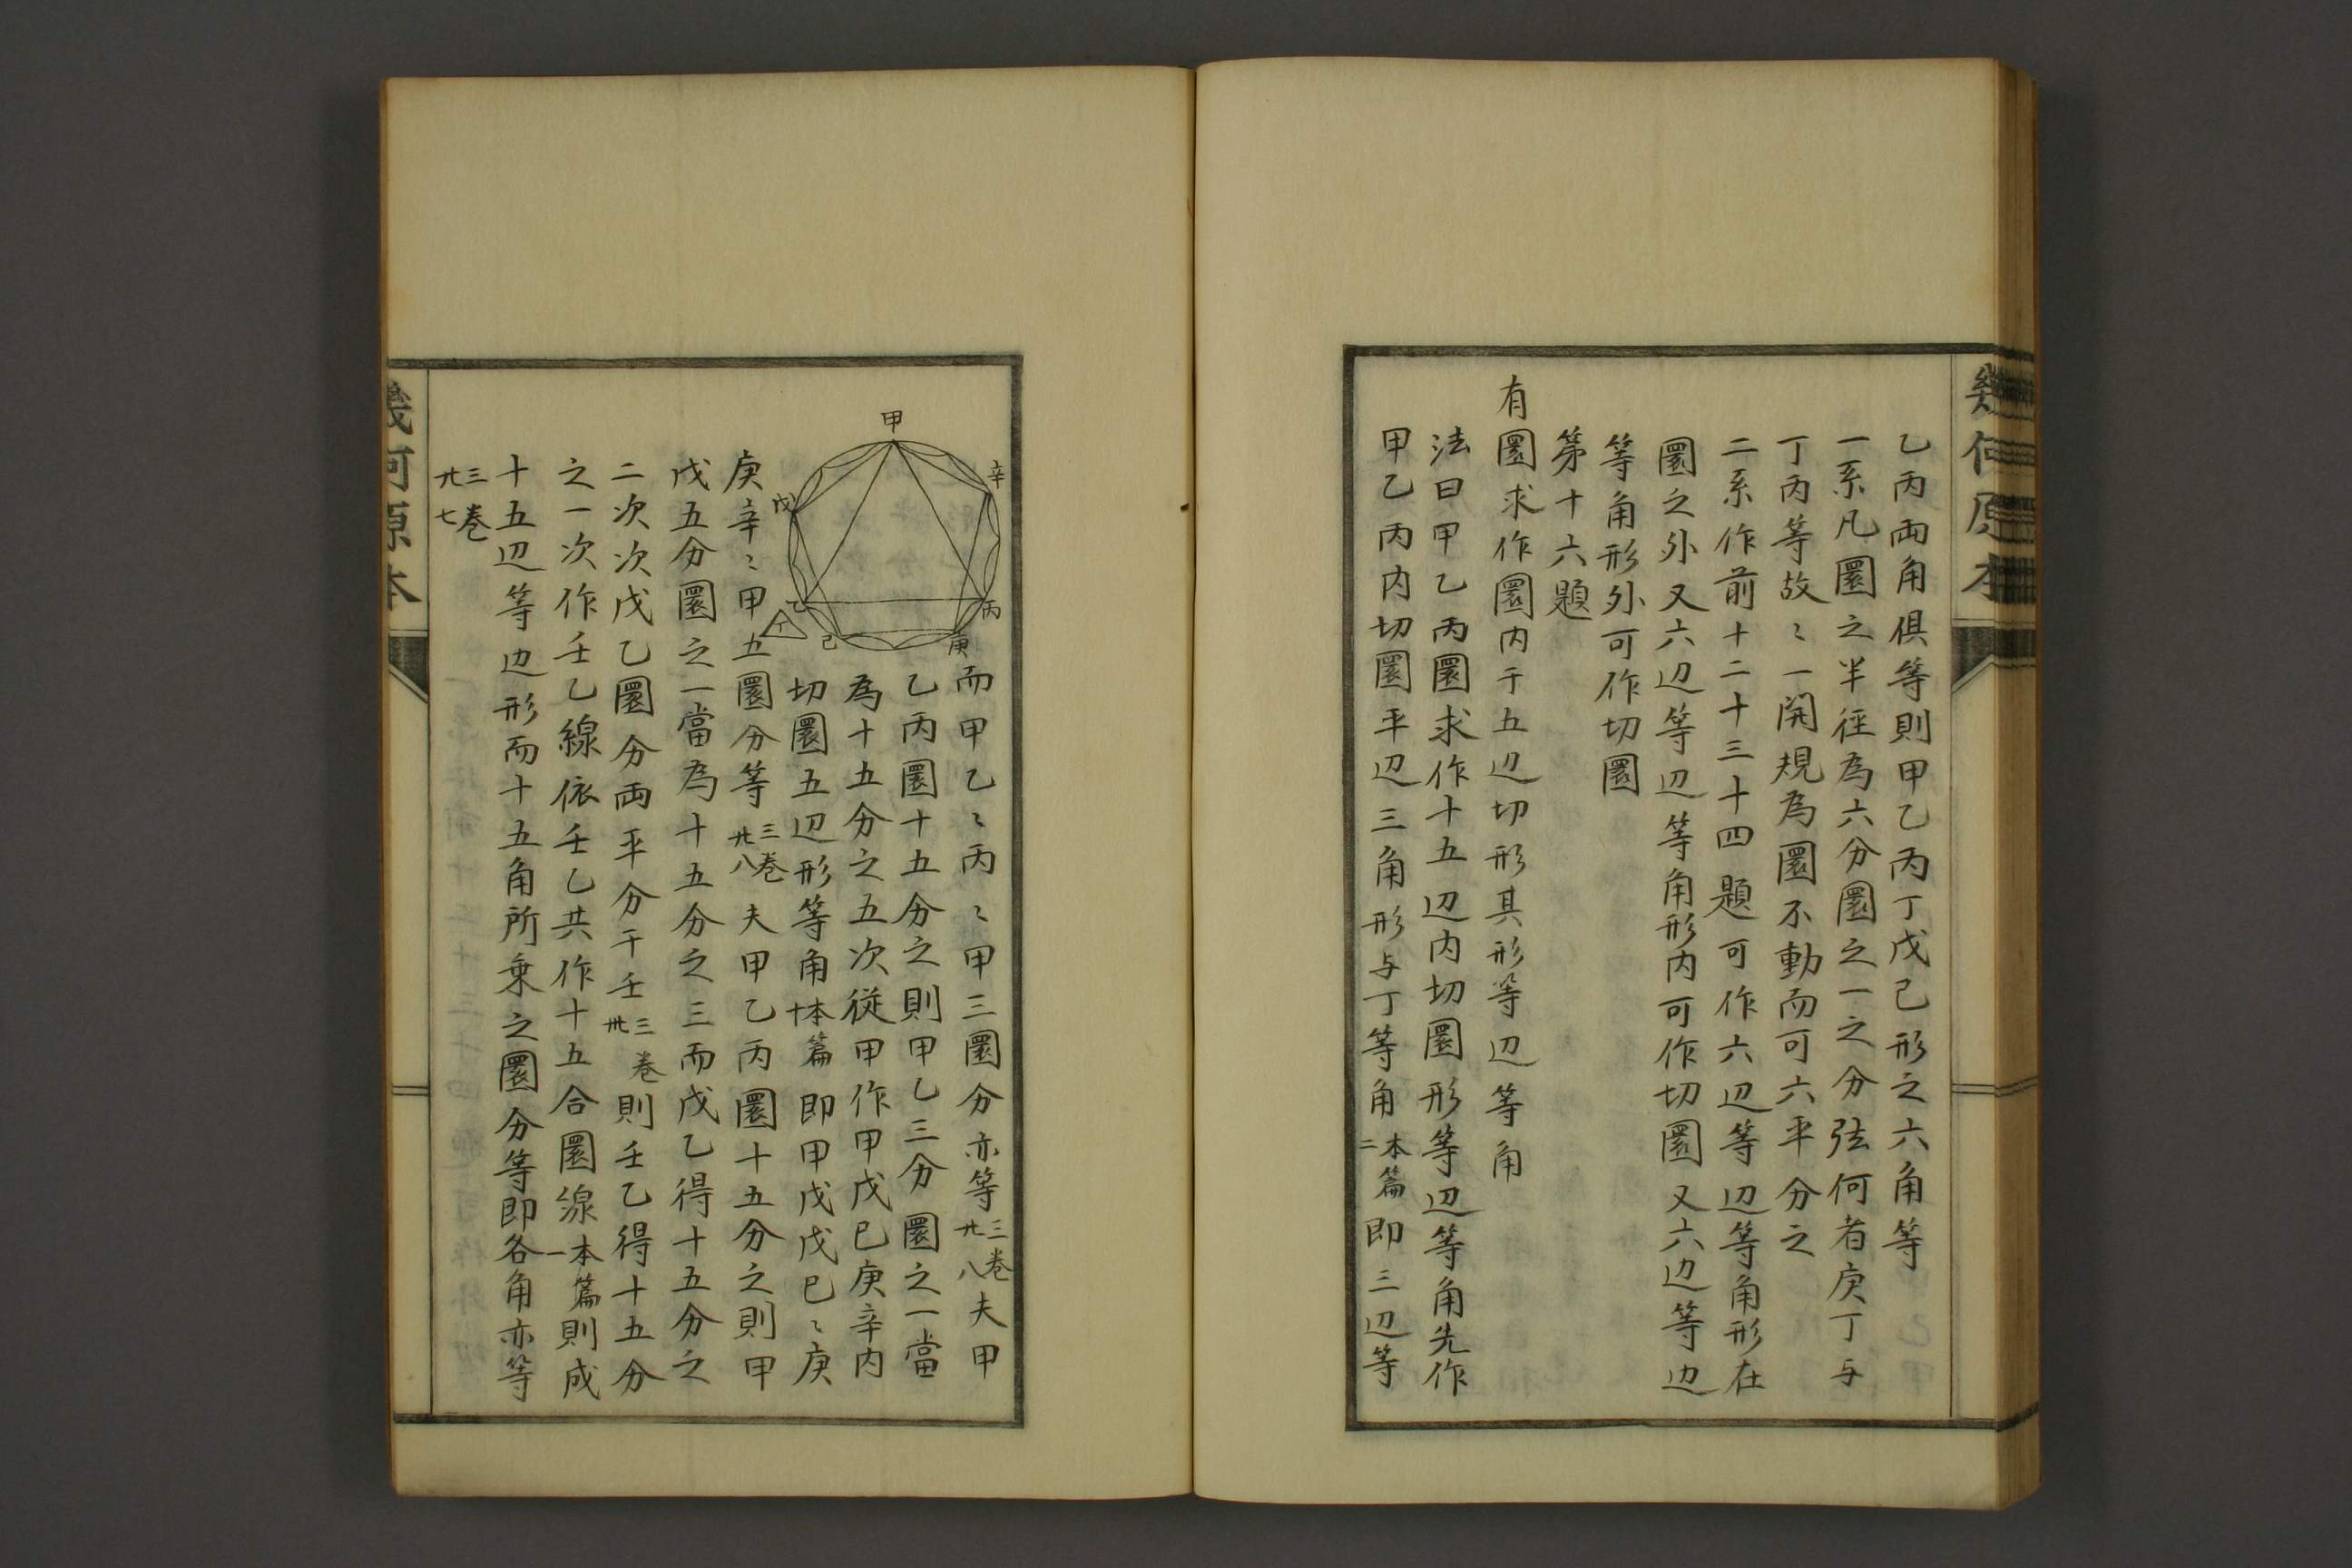 幾何原本
乙丙兩角俱等則甲乙丙丁戊己形之六角等
一系凡圜之半徑為六分圜之一之分弦何者庚丁与
丁丙等故〻一開規為圜不動而可六平分之
二系作前十二十三十四題可作六边等边等角形在
圜之外又六边等边等角形内可作切圜又六边等边
等角形外可作切圜
第十六題
有圜求作圜内十五边切形其形等边等角
法曰甲乙丙圜求作十五边内切圜形等边等角先作
甲乙丙内切圜平边三角形与丁等角本篇二即三边等
而甲乙〻丙〻甲三圜分亦等三卷廿八夫甲
乙丙圜十五分之則甲乙三分圜之一當
為十五分之五次從甲作甲戊己庚辛内
切圜五边形等角本篇十即甲戊戊己〻庚
庚辛〻甲五圜分等三卷廿八夫甲乙丙圜十五分之則甲
戊五分圜之一當為十五分之三而戊乙得十五分之
二次次戊乙圜分両平分于壬三卷卅則壬乙得十五分
之一次作壬乙線依壬乙共作十五合圜線本篇一則成
十五边等边形而十五角所乗之圜分等即各角亦等
三卷廿七
甲
辛
戊
乙
丙
丁
己
庚
幾何原本